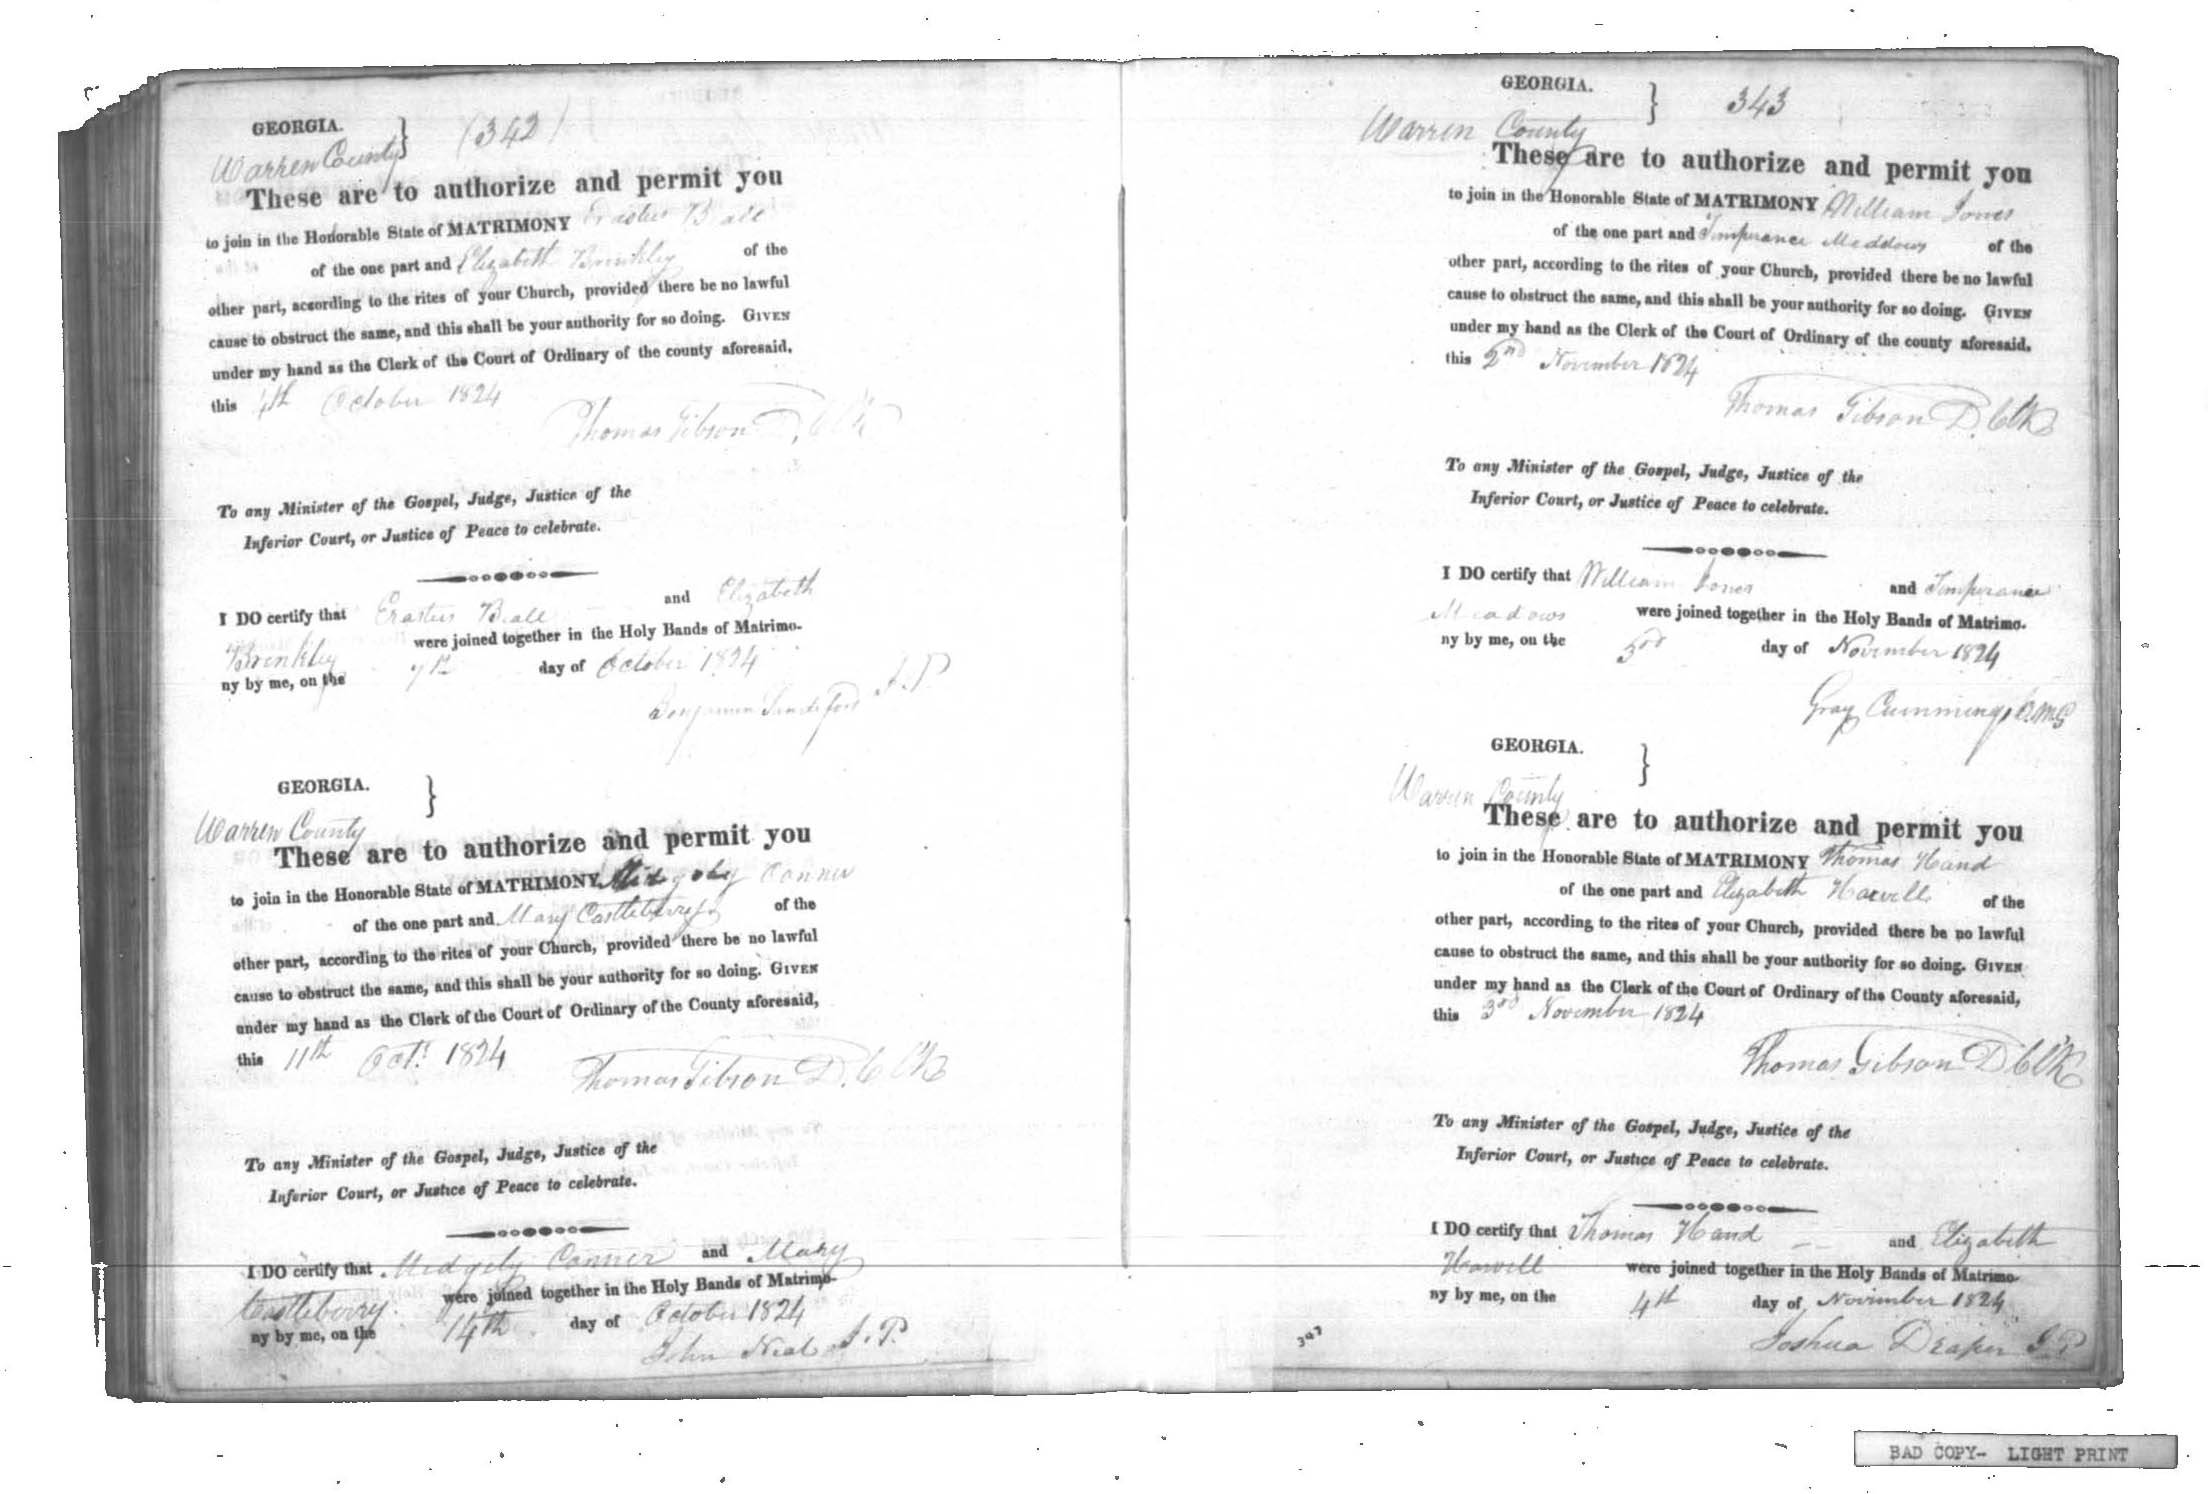 GEORGIA. } (342)
Warren County
These are to authorize and permit you
to join in the Honorable State of MATRIMONY Erastus Beall
of the one part and Elizabeth Brinkley of the
other part, according to the rites of your Church, provided there be no lawful
cause to obstruct the same, and this shall be your authority for so doing. GIVEN
under my hand as the Clerk of the Court of Ordinary of the county aforesaid,
this 4th October 1824
Thomas Gibson D. Clk
To any Minister of the Gospel, Judge, Justice of the
Inferior Court, or Justice of Peace to celebrate.
I DO certify that Erastus Beall and Elizabeth
Brinkley were joined together in the Holy Bands of Matrimo-
ny by me, on the 7th day of October 1824
Benjamin Sandeford J.P
GEORGIA. }
Warren County
These are to authorize and permit you
to join in the Honorable State of MATRIMONY Conner
of the one part and Mary Castleberry of the
other part, according to the rites of your Church, provided there be no lawful
cause to obstruct the same, and this shall be your authority for so doing. GIVEN
under my hand as the Clerk of the Court of Ordinary of the County aforesaid,
this 11th Oct. 1824
Thomas Gibson D. Clk
To any Minister of the Gospel, Judge, Justice of the
Inferior Court, or Justice of Peace to celebrate.
I DO certify that Conner and Mary
Castleberry were joined together in the Holy Bands of Matrimo-
ny by me, on the 14th day of October 1824
John Neal J.P.
GEORGIA. } 343
Warren County
These are to authorize and permit you
to join in the Honorable State of MATRIMONY William Jones
of the one part and Temperance Meddows of the
other part, according to the rites of your Church, provided there be no lawful
cause to obstruct the same, and this shall be your authority for so doing. GIVEN
under my hand as the Clerk of the Court of Ordinary of the county aforesaid.
this 2nd November 1824
Thomas Gibson D. Clk
To any Minister of the Gospel, Judge, Justice of the
Inferior Court, or Justice of Peace to celebrate.
I DO certify that William Jones and Temperance
Meadows were joined together in the Holy Bands of Matrimo-
ny by me, on the 3rd day of November 1824
Gray Cummings
GEORGIA. }
Warren County
These are to authorize and permit you
to join in the Honorable State of MATRIMONY Thomas Hand
of the one part and Elizabeth Harvill of the
other part, according to the rites of your Church, provided there be no lawful
cause to obstruct the same, and this shall be your authority for so doing. GIVEN
under my hand as the Clerk of the Court of Ordinary of the County aforesaid,
this 3rd November 1824
Thomas Gibson D Clk
To any Minister of the Gospel, Judge, Justice of the
Inferior Court, or Justice of Peace to celebrate.
I DO certify that Thomas Hand and Elizabeth
Harvill were joined together in the Holy Bands of Matrimo-
ny by me, on the 4th day of November 1824
Joshua Draper J.P
BAD COPY- LIGHT PRINT